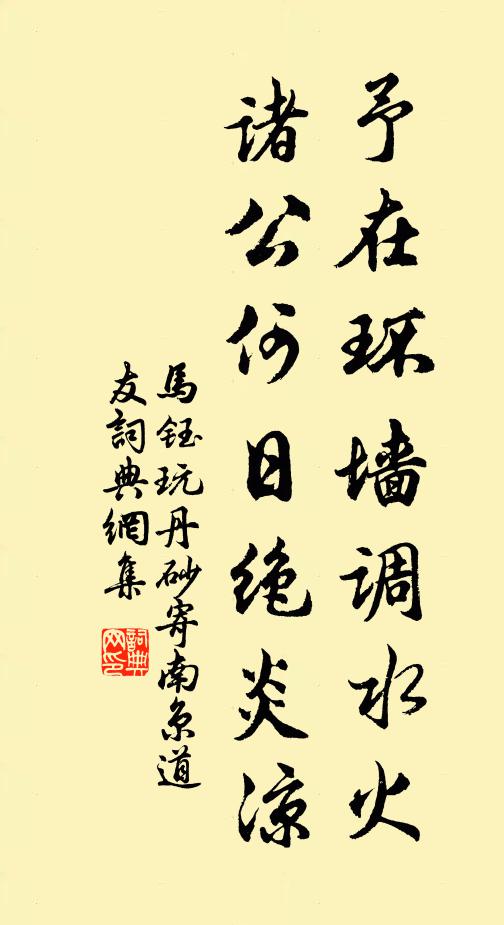 予在环墙调水火
诸公何日绝炎凉
馬鈺玩丹砂寄南京道
友詞典網集
詞典網印